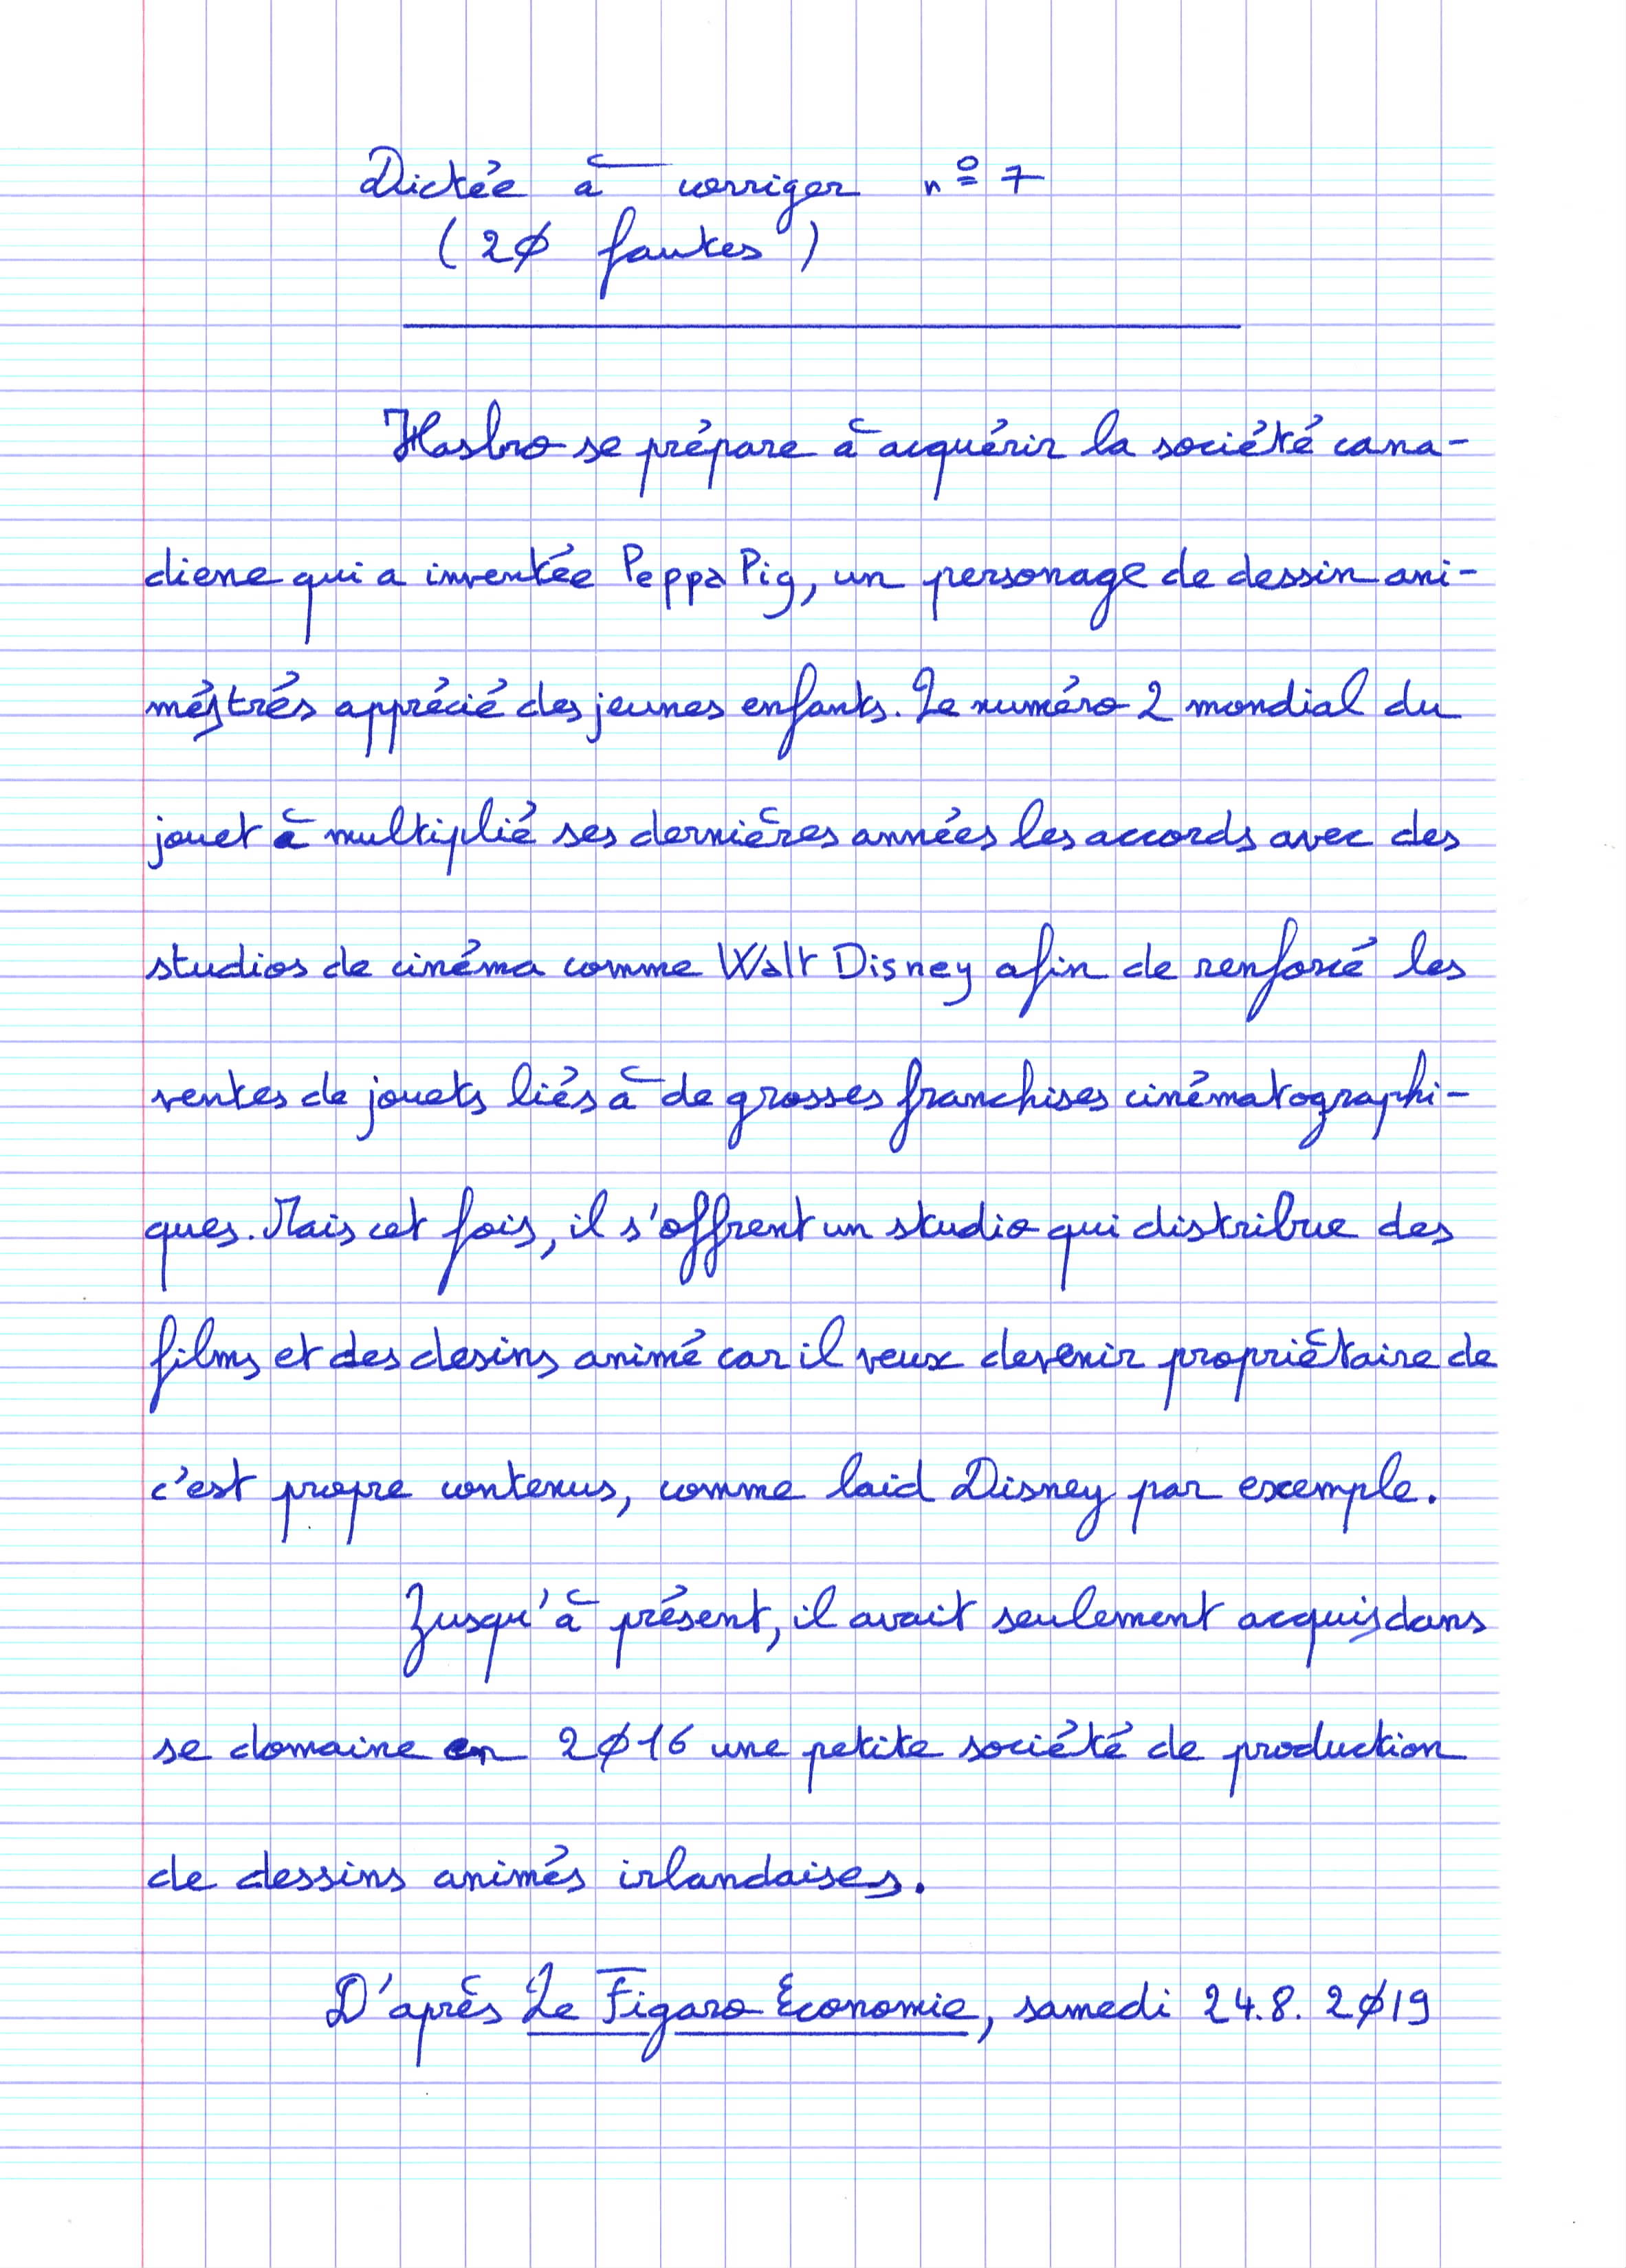 Dictée à corriger nº 7
(20 fautes)
Hasbro se prépare à acquérir la société cana-
diene qui a inventée Peppa Pig, un personage de dessin ani-
més trés apprécié des jeunes enfants. Le numéro 2 mondial du
jouet à multiplié ses dernières années les accords avec des
studios de cinéma comme Walt Disney afin de renforcé les
ventes de jouets liés à de grosses franchises cinématographi-
ques. Mais cet fois, il s'offrent un studio qui distribue des
films et des desins animé car il veux devenir propriètaire de
c'est propre contenus, comme laid Disney par exemple.
Jusqu'à présent, il avait seulement acquis dans
se domaine en 2016 une petite société de production
de dessins animés irlandaises.
D'après Le Figaro Economie, samedi 24.8.2019